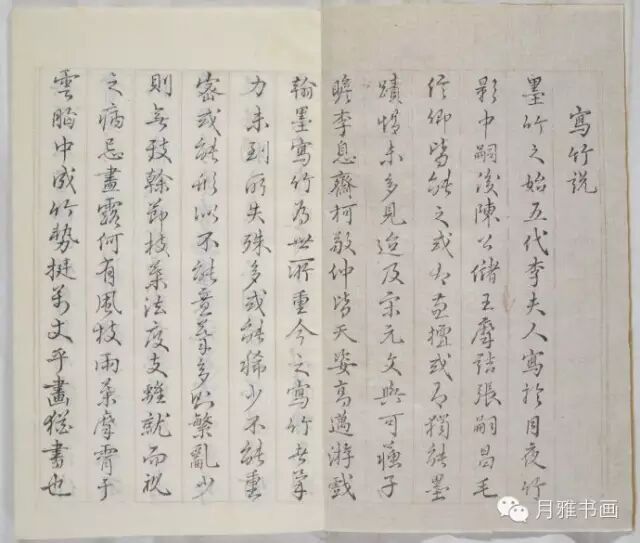 寫竹説
墨竹之始五代李夫人寫於月夜竹
影中嗣後陳公儲王摩詰張嗣昌毛
信卿皆能之或有兼擅或有獨能墨
蹟惜未多見迨及宋元文與可蘇子
瞻李息齋柯敬仲皆天姿高邁游戲
翰墨寫竹為世所重今之寫竹者筆
力未到所失殊多或能稀少不能重
密或能形似不能意筆多則繁亂少
則無幹節枝葉法度支離就而視
之病忌畫露何有風枝雨葉摩霄干
雲胸中成竹勢挺萬丈乎畫猶書也
月雅书画